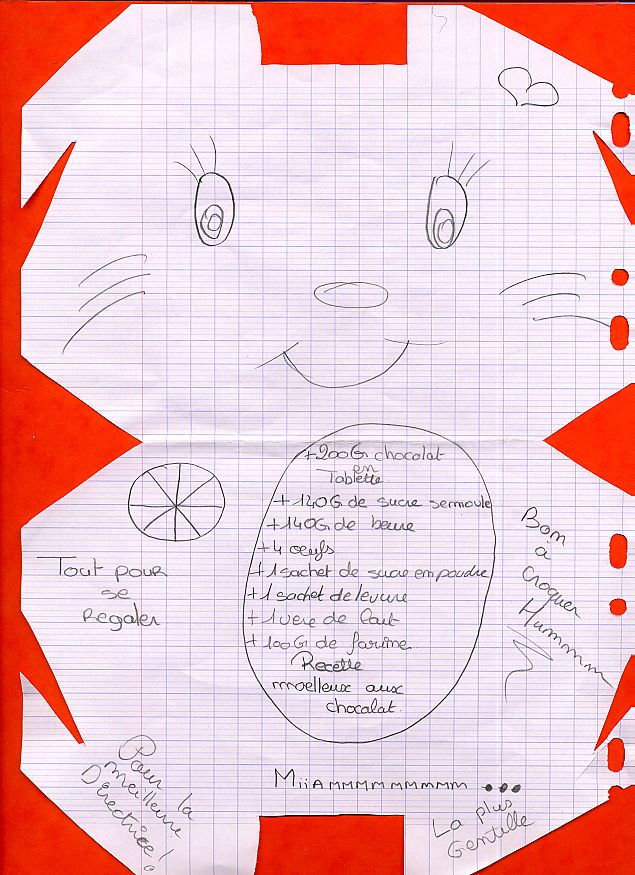 +200G chocolat
en
Tablette
+140G de sucre semoule
+140G de beure
+4 oeufs
+1 sachet de sucre en poudre
+1 sachet de levure
+1 vere de lait
+100G de farine
Recette
moelleux aux
chocalat.
Tout pour
se
Regaler
Bon
à
croquer
Hummmm
Miiammmmmmmmm ...
Pour la
meilleure
Directrice!
La plus
Gentille